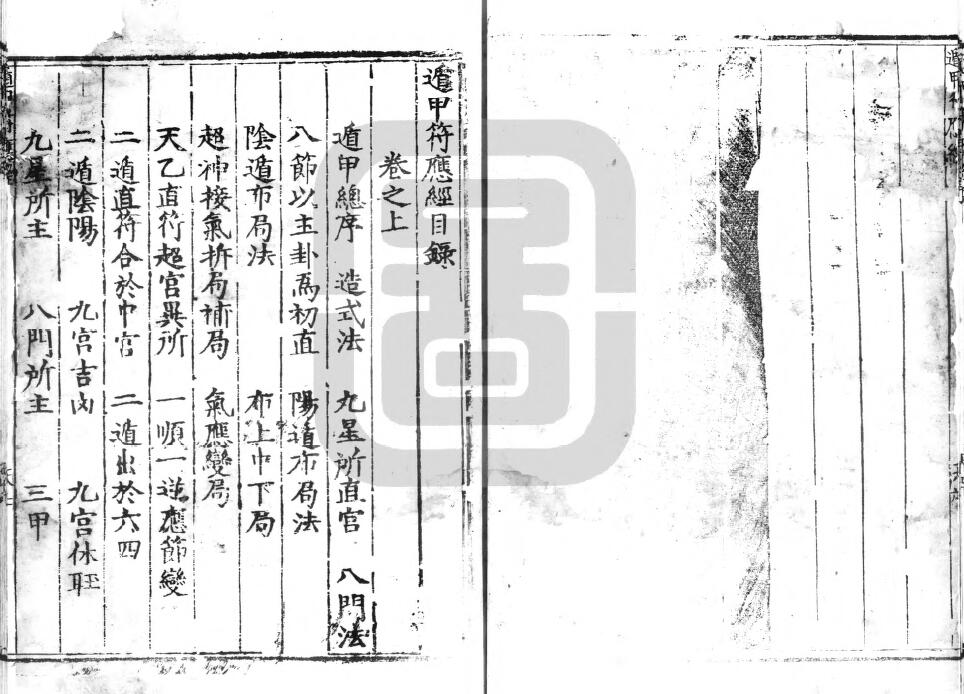 遁甲符應經目錄
卷之上
遁甲總序 造式法 九星所直宮 八門法
八節以主卦爲初直 陽遁布局法
陰遁布局法 布上中下局
超神接氣折局補局 氣應變局
天乙直符超宮異所 一順一逆應節變
二遁直符合於中宮 二遁出於六四
二遁陰陽 九宮吉凶 九宮休旺
九星所主 八門所主 三甲